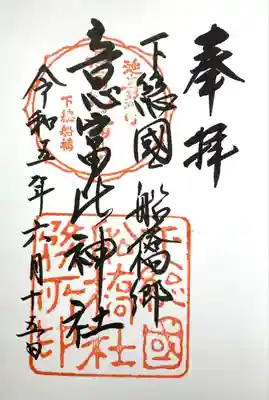 奉拝
下総國 船橋郷
意富比神社
令和五年六月十五日
下総船橋